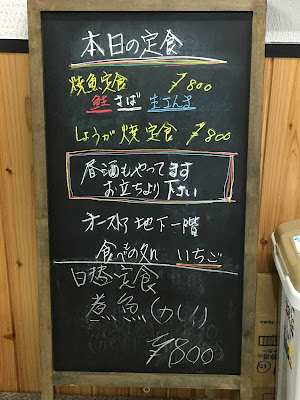 本日の定食
焼魚定食 ¥800
鮭 さば 生さんま
しょうが焼定食 ¥800
昼酒もやってます
お立ちより下さい
オーストア地下一階
食べもの処 いちご
日替定食
煮魚(カレイ)
¥800